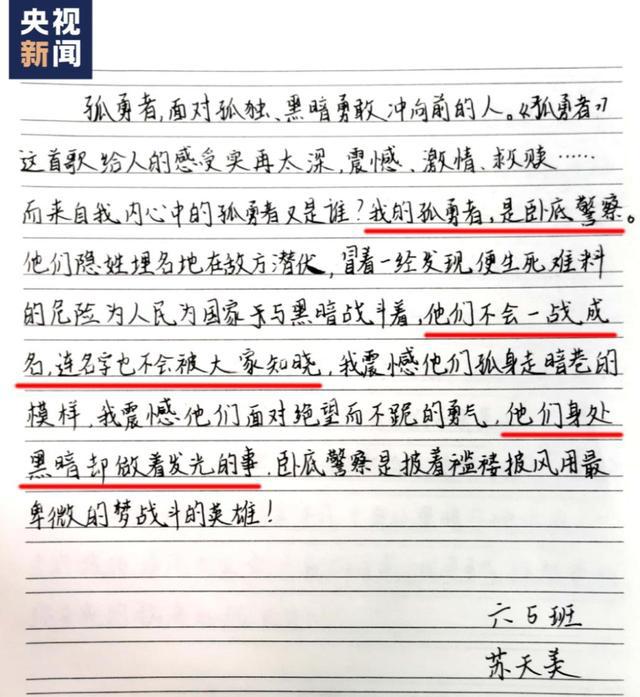 央视
新闻
孤勇者，面对孤独、黑暗勇敢冲向前的人。《孤勇者》
这首歌给人的感受实再太深，震憾、激情、救赎……
而来自我内心中的孤勇者又是谁？我的孤勇者，是卧底警察。
他们隐姓埋名地在敌方潜伏，冒着一经发现便生死难料
的危险为人民为国家于与黑暗战斗着，他们不会一战成
名，连名字也不会被大家知晓，我震憾他们孤身走暗巷的
模样，我震憾他们面对绝望而不跪的勇气，他们身处
黑暗却做着发光的事，卧底警察是披着褴褛披风用最
卑微的梦战斗的英雄！
六5班
苏天美